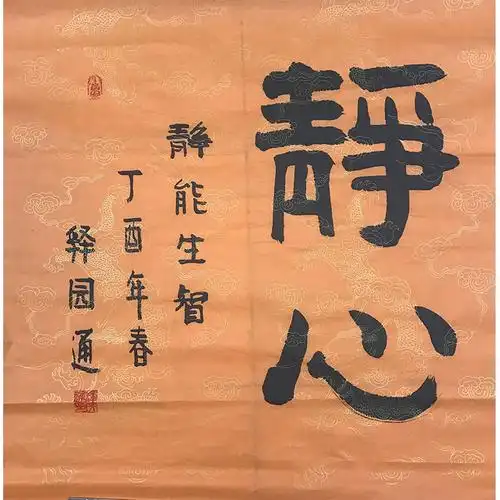 靜心
静能生智
丁酉年春
释园通